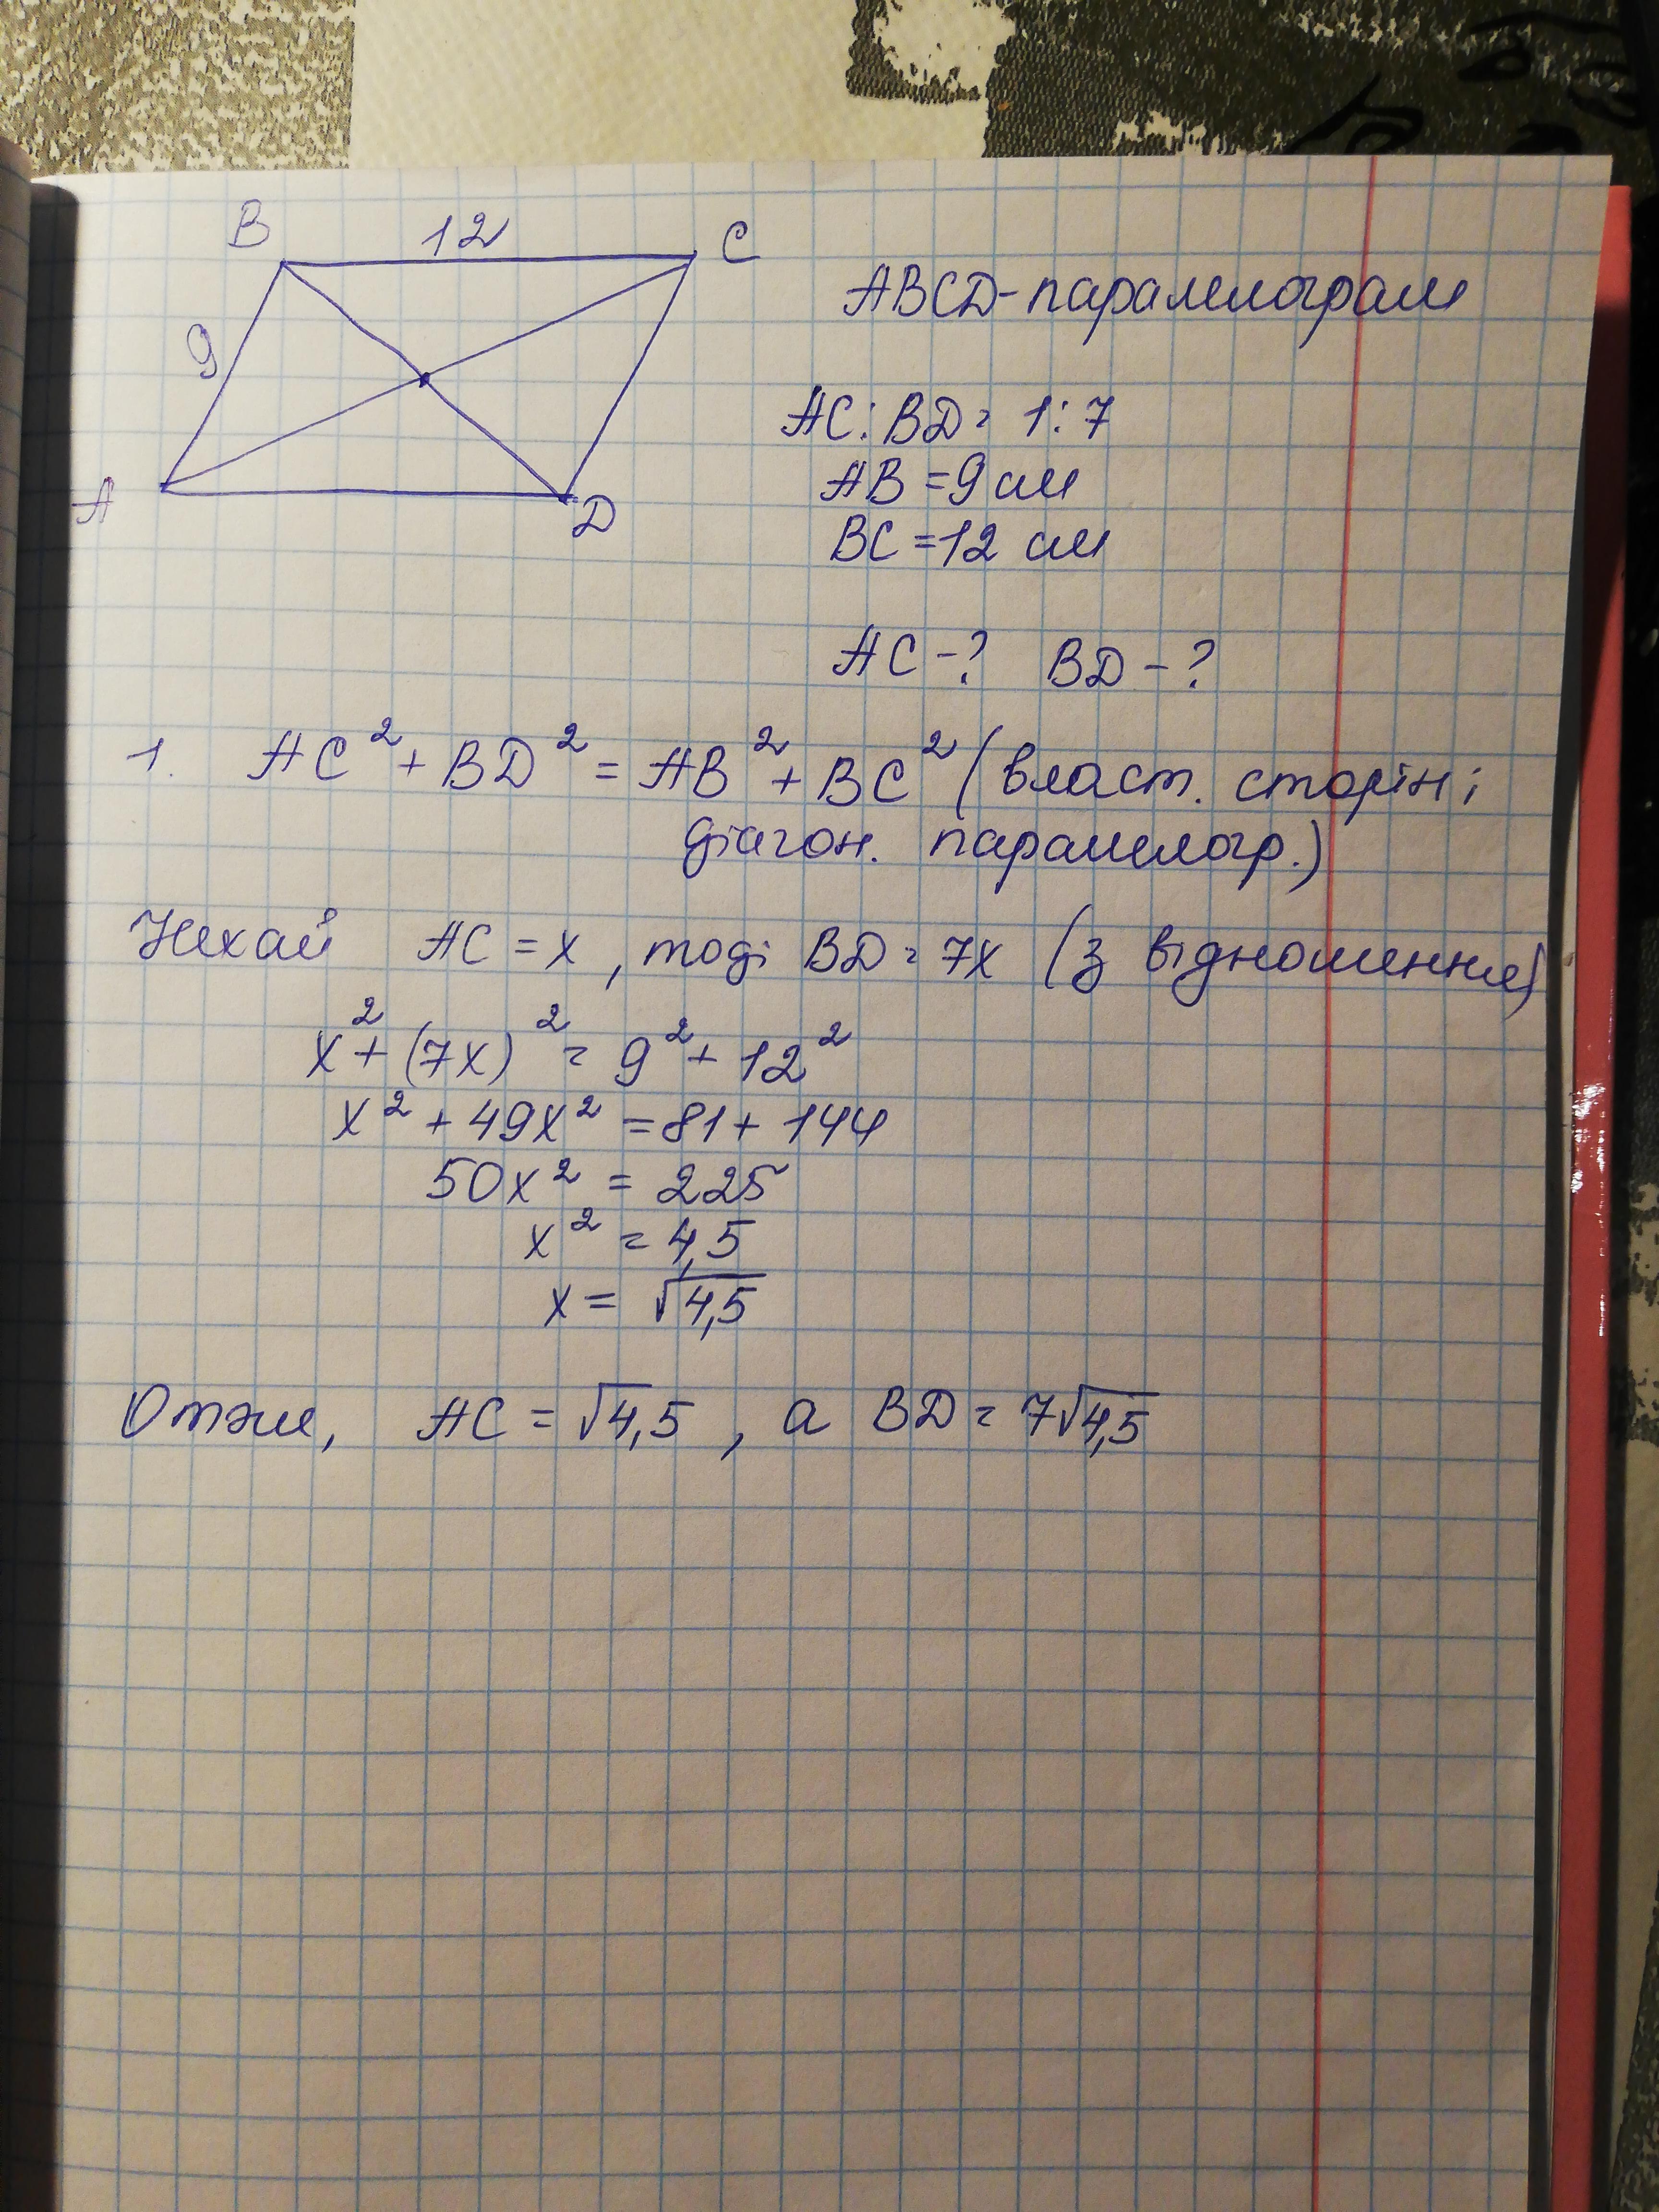 B 12 C
9
A D
ABCD-паралелограм
AC:BD = 1:7
AB = 9 см
BC = 12 см
AC - ? BD - ?
1. AC² + BD² = AB² + BC² (власт. сторін і
діагон. паралелогр.)
Нехай AC = x, тоді BD = 7x (з відношення)
x² + (7x)² = 9² + 12²
x² + 49x² = 81 + 144
50x² = 225
x² = 4,5
x = √4,5
Отже, AC = √4,5, а BD = 7√4,5